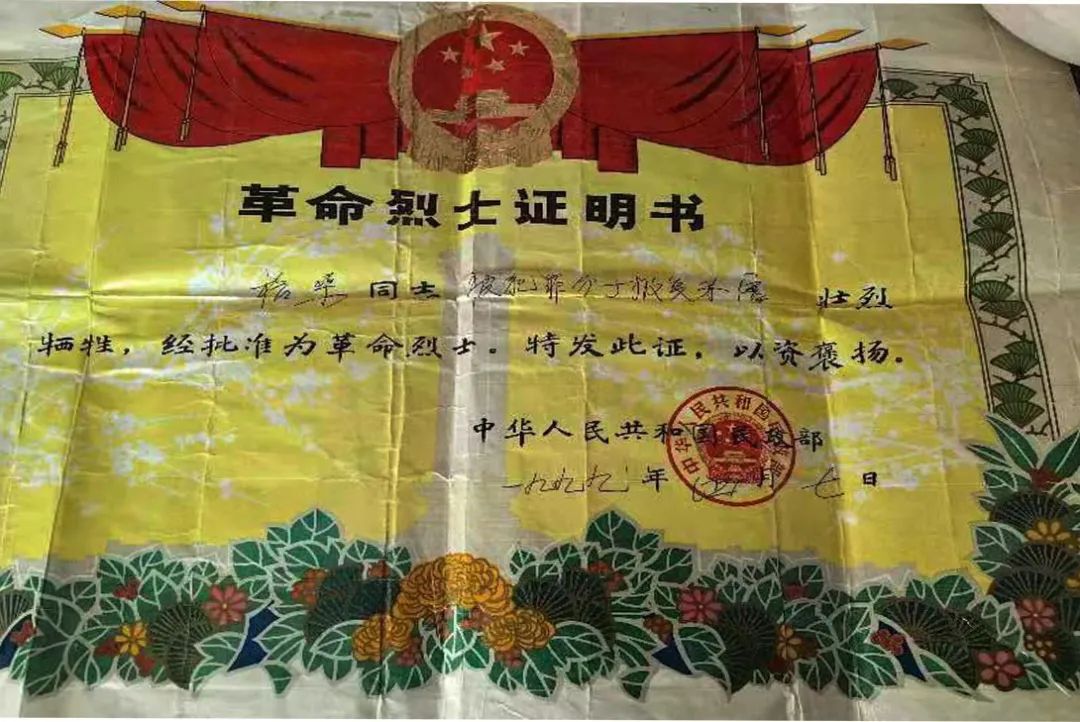 革命烈士证明书
同志 被犯罪分子报复杀害 壮烈
牺牲，经批准为革命烈士。特发此证，以资褒扬。
中华人民共和国民政部
一九九九年 月七日
中华人民共和国民政部